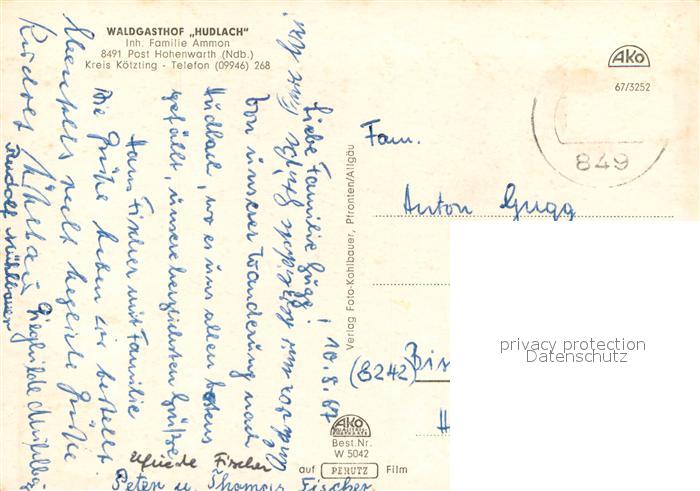 WALDGASTHOF „HUDLACH"
Inh. Familie Ammon
8491 Post Hohenwarth (Ndb.)
Kreis Kötzting - Telefon (09946) 268
AKO
67/3252
849
Fam.
Anton Gugg
(8242) Bis
H
privacy protection
Datenschutz
Verlag Foto-Kohlbauer, Pfronten/Allgäu
AKO
Best.Nr.
W 5042
auf PERUTZ Film
10.8.67
Liebe Familie Gugg!
Von unserer Wanderung nach
Hudlach, wo es uns allen bestens
gefällt, unsere herzlichsten Grüße
Hans Fischer mit Familie
Die Grüße haben wir bestellt
Ebenfalls recht herzliche Grüße
Rudolf Mühlbauer
Sieghilde Mühlb
Elfriede Fischer
Peter u. Thomas Fischer